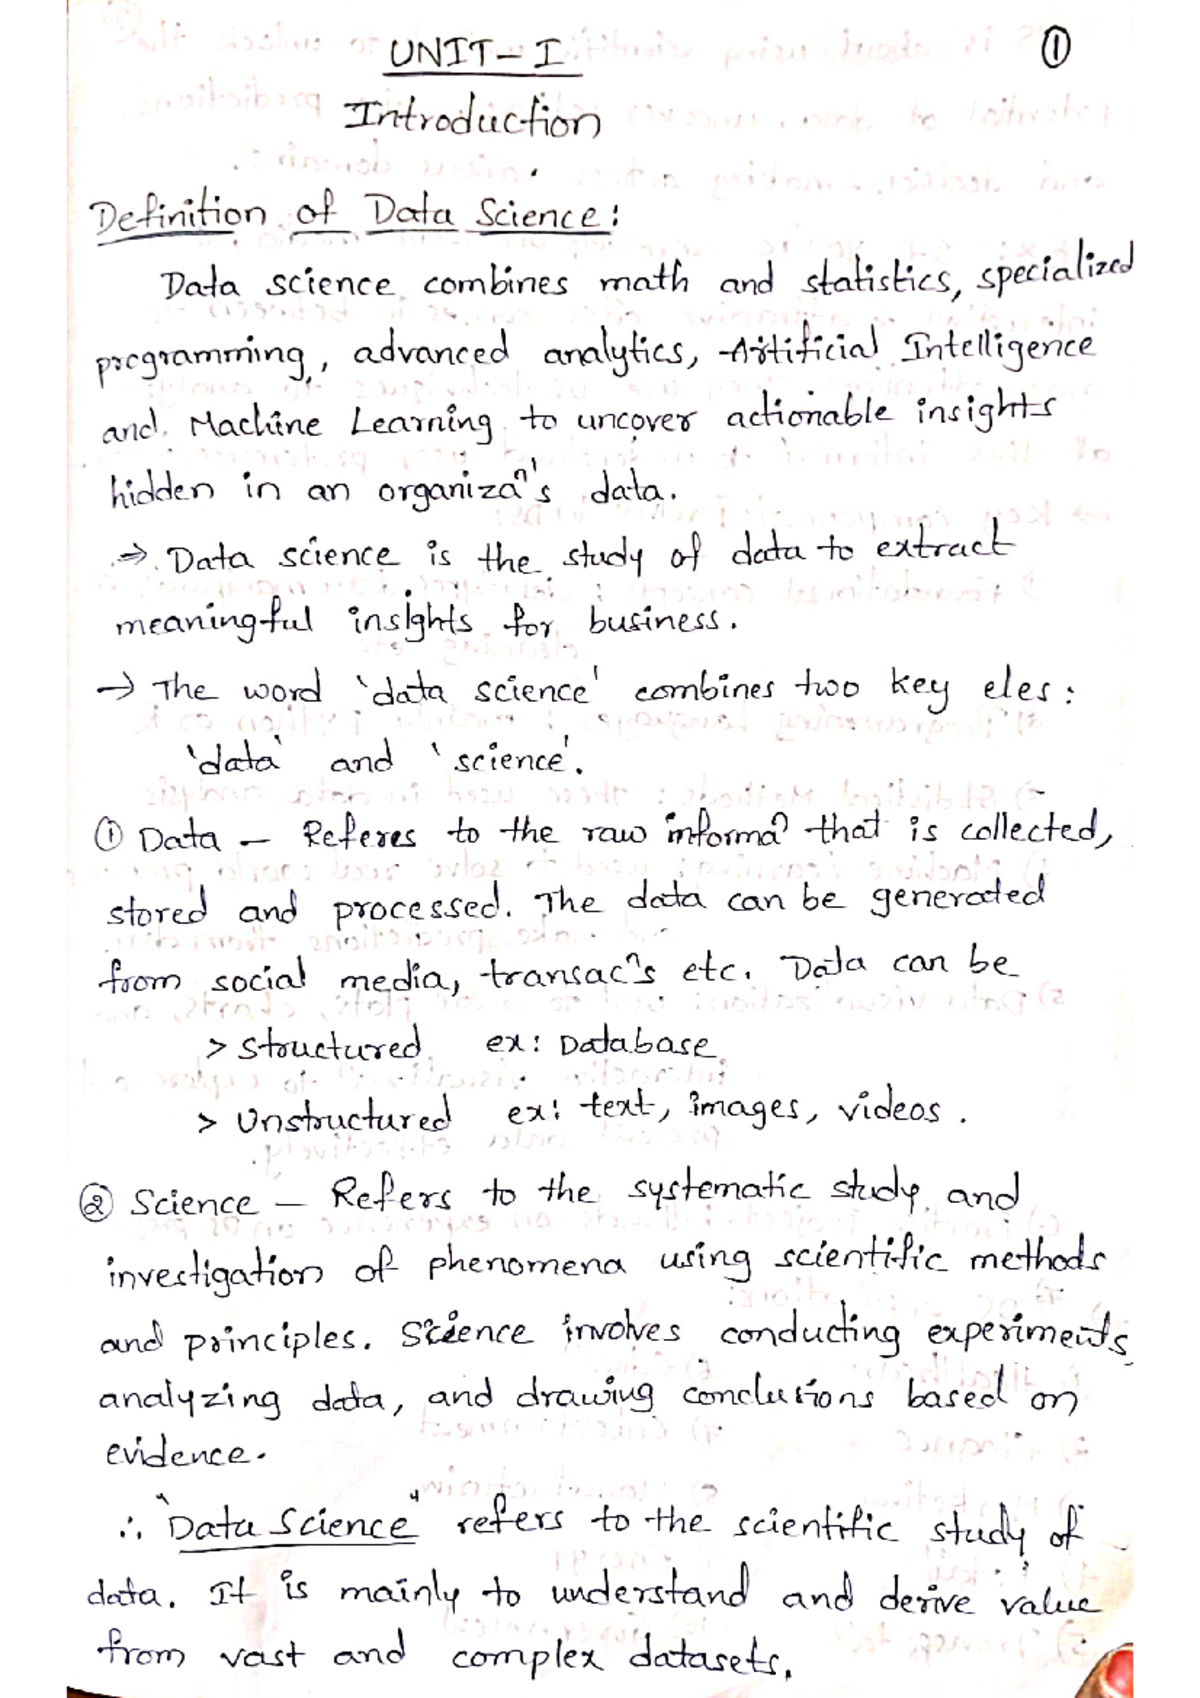 UNIT-I
①
Introduction
Definition of Data Science:
Data science combines math and statistics, specialized
programming, advanced analytics, Artificial Intelligence
and Machine Learning to uncover actionable insights
hidden in an organizaⁿ's data.
⇒ Data science is the study of data to extract
meaningful insights for business.
→ The word 'data science' combines two key eles:
'data' and 'science'.
① Data – Referes to the raw informaⁿ that is collected,
stored and processed. The data can be generated
from social media, transacⁿs etc. Data can be
> Structured ex: Database
> Unstructured ex: text, images, videos.
② Science – Refers to the systematic study and
investigation of phenomena using scientific methods
and principles. Science involves conducting experiments,
analyzing data, and drawing conclusions based on
evidence.
∴ "Data Science" refers to the scientific study of
data. It is mainly to understand and derive value
from vast and complex datasets.